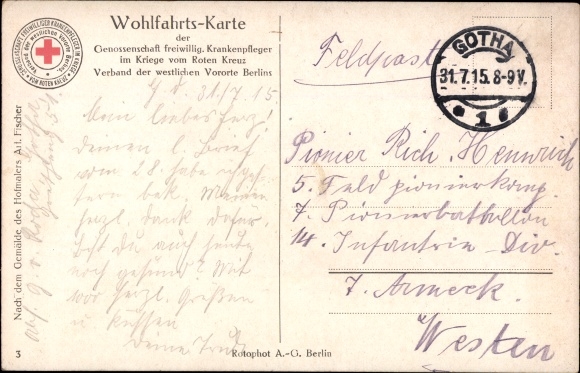 Wohlfahrts-Karte
der
Genossenschaft freiwillig. Krankenpfleger
im Kriege vom Roten Kreuz
Verband der westlichen Vororte Berlins
GENOSSENSCHAFT FREIWILLIGER KRANKENPFLEGER IM KRIEGE
VOM ROTEN KREUZ
Verband der westlichen Vororte Berlins
Feldpost
GOTHA
31.7.15.8-9V.
* 1 *
G. d. 31/7.15.
Mein liebes Herz!
Deinen l. Brief
vom 28. habe ich ge-
stern bek. Meinen
herzl. Dank dafür.
Bist du auch heute
noch gesund? Mit
1000 herzl. Grüßen
u Küssen
Deine Trude
Pionier Rich. Hennrich
5. Feld pionierkomp.
7. Pionierbattallon
14. Infantrie-Div.
7. Armeek.
Westen
Nach dem Gemälde des Hofmalers Art. Fischer
3
Rotophot A.-G. Berlin